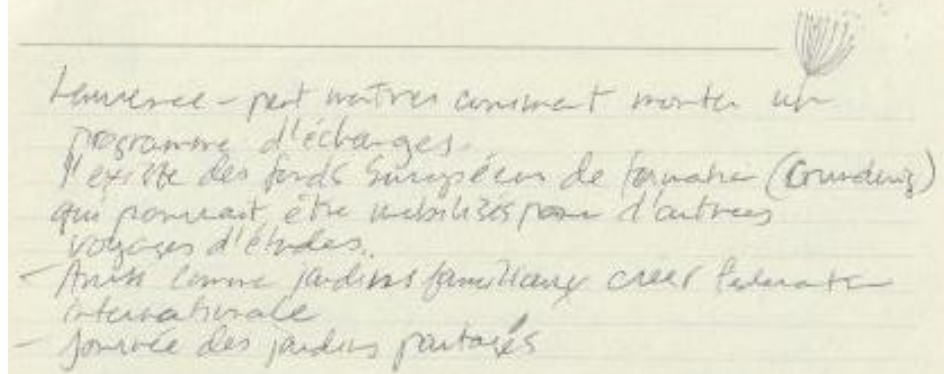 Laurence - peut montrer comment monter un
programme d'échanges.
Il existe des fonds Européens de formation (Grundtvig)
qui pourrait être mobilisés pour d'autres
voyages d'études..
- comme jardins familiaux créer fédération
internationale
- Journée des jardins partagés